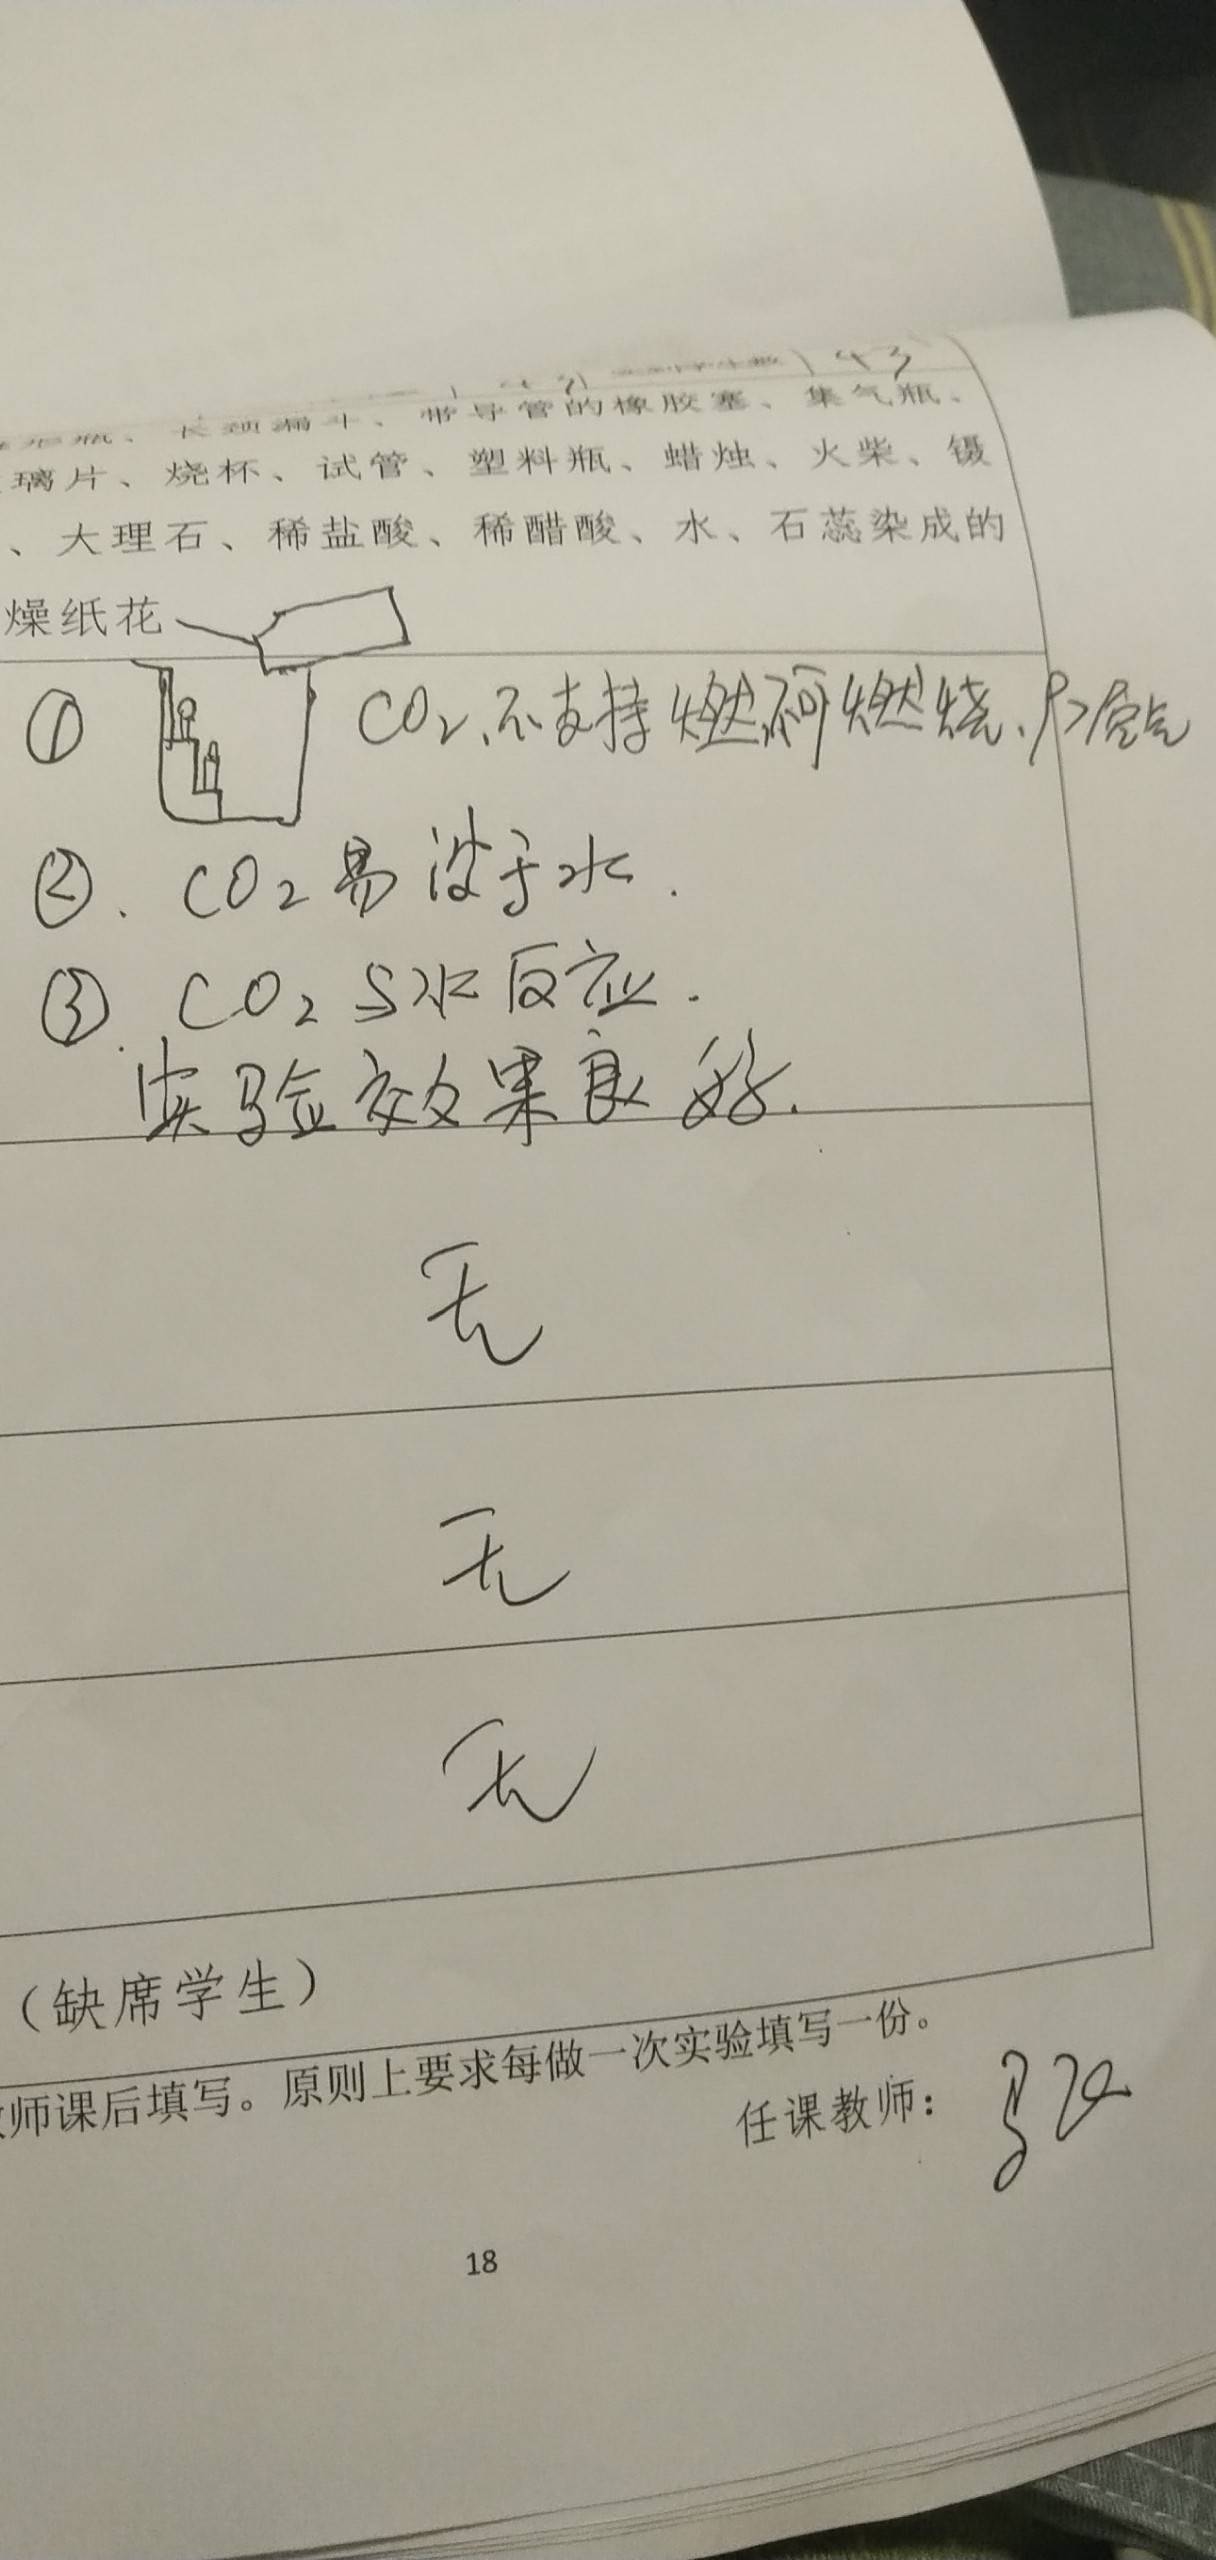 43
形瓶、长颈漏斗、带导管的橡胶塞、集气瓶、
璃片、烧杯、试管、塑料瓶、蜡烛、火柴、镊
、大理石、稀盐酸、稀醋酸、水、石蕊染成的
燥纸花
① CO₂不支持燃烧、可燃烧、ρ>空气
②. CO₂易溶于水.
③. CO₂与水反应.
实验效果良好.
无
无
无
（缺席学生）
师课后填写。原则上要求每做一次实验填写一份。
任课教师：
18